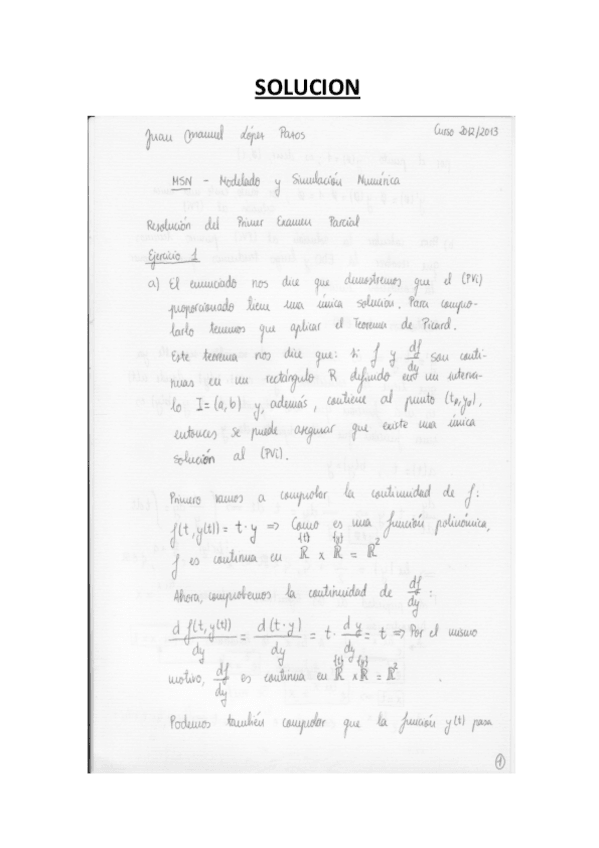 SOLUCION
Juan Manuel López Pazos Curso 2012/2013
MSN - Modelado y Simulación Numérica
Resolución del Primer Examen Parcial
Ejercicio 1
a) El enunciado nos dice que demostremos que el (PVi)
proporcionado tiene una única solución. Para compro-
barlo tenemos que aplicar el Teorema de Picard.
Este teorema nos dice que: si f y df/dy son conti-
nuas en un rectángulo R definido en un interva-
lo I = (a, b) y, además, contiene al punto (t₀, y₀),
entonces se puede asegurar que existe una única
solución al (PVi).
Primero vamos a comprobar la continuidad de f:
f(t, y(t)) = t · y => Como es una función polinómica,
f es continua en ℝ{t} x ℝ{y} = ℝ²
Ahora, comprobemos la continuidad de df/dy :
d f(t, y(t))/dy = d (t · y)/dy = t · dy/dy = t => Por el mismo
motivo, df/dy es continua en ℝ{t} x ℝ{y} = ℝ²
Podemos también comprobar que la función y(t) pasa
1